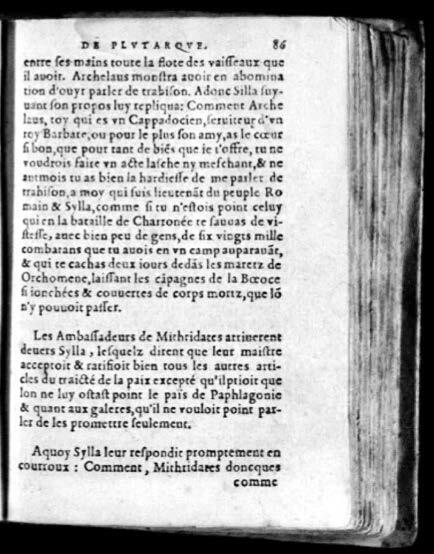 DE PLVTARQVE. 86
entre ses mains toute la flote des vaisseaux que
il avoir. Archelaus monstra avoir en abomina
tion d'ouyr parler de trahison. Adonc Silla suy-
uant son propos luy repliqua: Comment Arche
laus, toy qui es vn Cappadocien, seruiteur d'vn
roy Barbare, ou pour le plus son amy, as le cœur
si bon, que pour tant de biẽs que ie t'offre, tu ne
voudrois faire vn acte lasche ny meschant, & ne
antmois tu as bien la hardiesse de me parler de
trahison, a moy qui suis lieutenãt du peuple Ro
main & Sylla, comme si tu n'estois point celuy
qui en la bataille de Charronée te sauuas de vi-
stesse, auec bien peu de gens, de six vingts mille
combatans que tu auois en vn camp auparauãt,
& qui te cachas deux iours dedãs les maretz de
Orchomene, laissant les cãpagnes de la Bœoce
si ionchées & couuertes de corps mortz, que lõ
n'y pouuoit passer.
Les Ambassadeurs de Mithridates arriuerent
deuers Sylla, lesquelz dirent que leur maistre
acceptoit & ratifioit bien tous les autres arti-
cles du traicté de la paix excepté qu'il prioit que
lon ne luy ostast point le païs de Paphlagonie
& quant aux galeres, qu'il ne vouloit point par-
ler de les promettre seulement.
Aquoy Sylla leur respondit promptement en
courroux : Comment, Mithridates doncques
comme